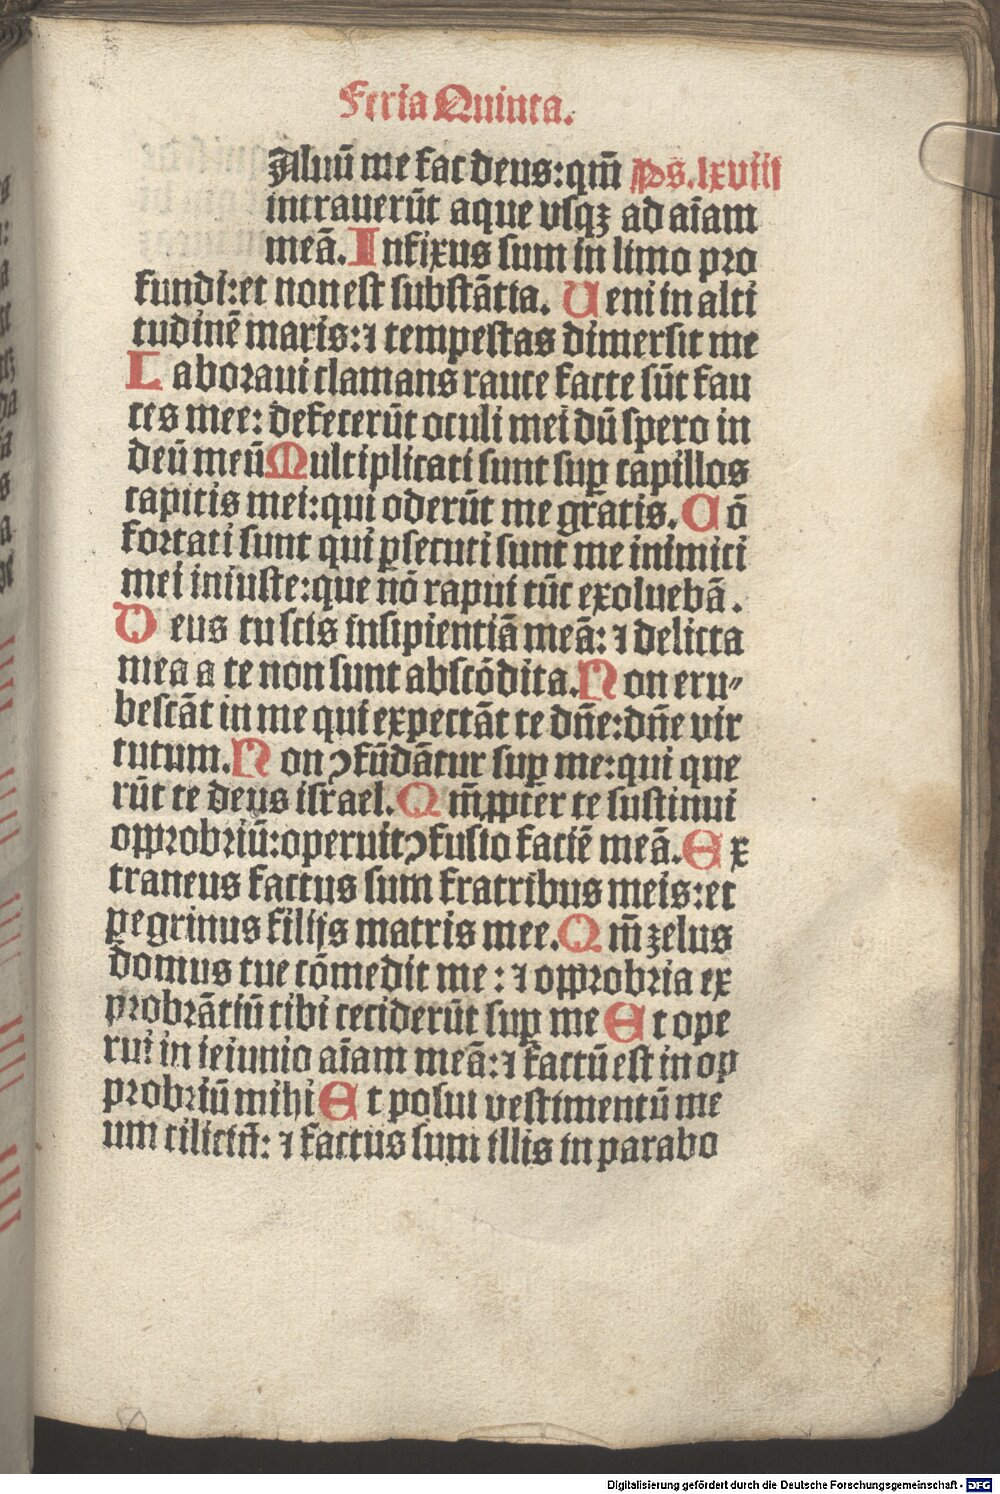 Feria Quinta.
Aluū me fac deus:qm̄ Ps.lxviii
intrauerūt aque vsqꝫ ad aīam
meā. Infixus sum in limo pro
fundi:et non est substātia. Ueni in alti
tudinē maris:⁊ tempestas dimersit me
Laboraui clamans rauce facte sūt fau
ces mee: defecerūt oculi mei dū spero in
deū meū Multiplicati sunt suꝑ capillos
capitis mei:qui oderūt me gratis. Cō
fortati sunt qui ꝑsecuti sunt me inimici
mei iniuste:que nō rapui tūc exoluebā.
Deus tu scis insipientiā meā: ⁊ delicta
mea a te non sunt abscōdita. Non eru⸗
bescāt in me qui expectāt te dn̄e:dn̄e vir
tutum. Non ↄfūdātur suꝑ me:qui que
rūt te deus israel. Qm̄ ꝓpter te sustinui
opprobriū:operuit ↄfusio faciē meā. Ex
traneus factus sum fratribus meis:et
ꝑegrinus filijs matris mee. Qm̄ zelus
domus tue cōmedit me: ⁊ opprobria ex
probrātiū tibi ceciderūt suꝑ me Et ope
rui in ieiunio aīam meā:⁊ factū est in op
probriū mihi Et posui vestimentū me
um ciliciū: ⁊ factus sum illis in parabo
Digitalisierung gefördert durch die Deutsche Forschungsgemeinschaft - DFG